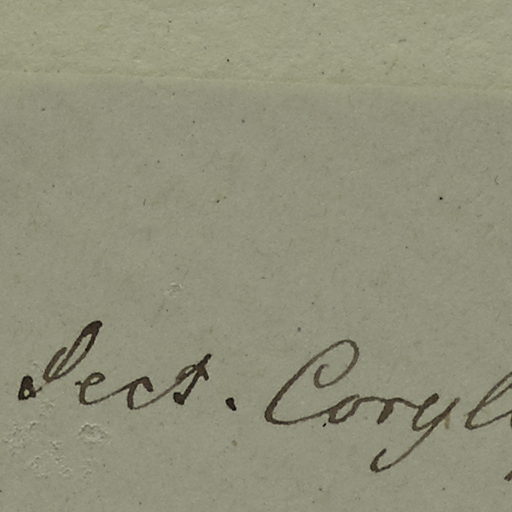 Sect. Coryl